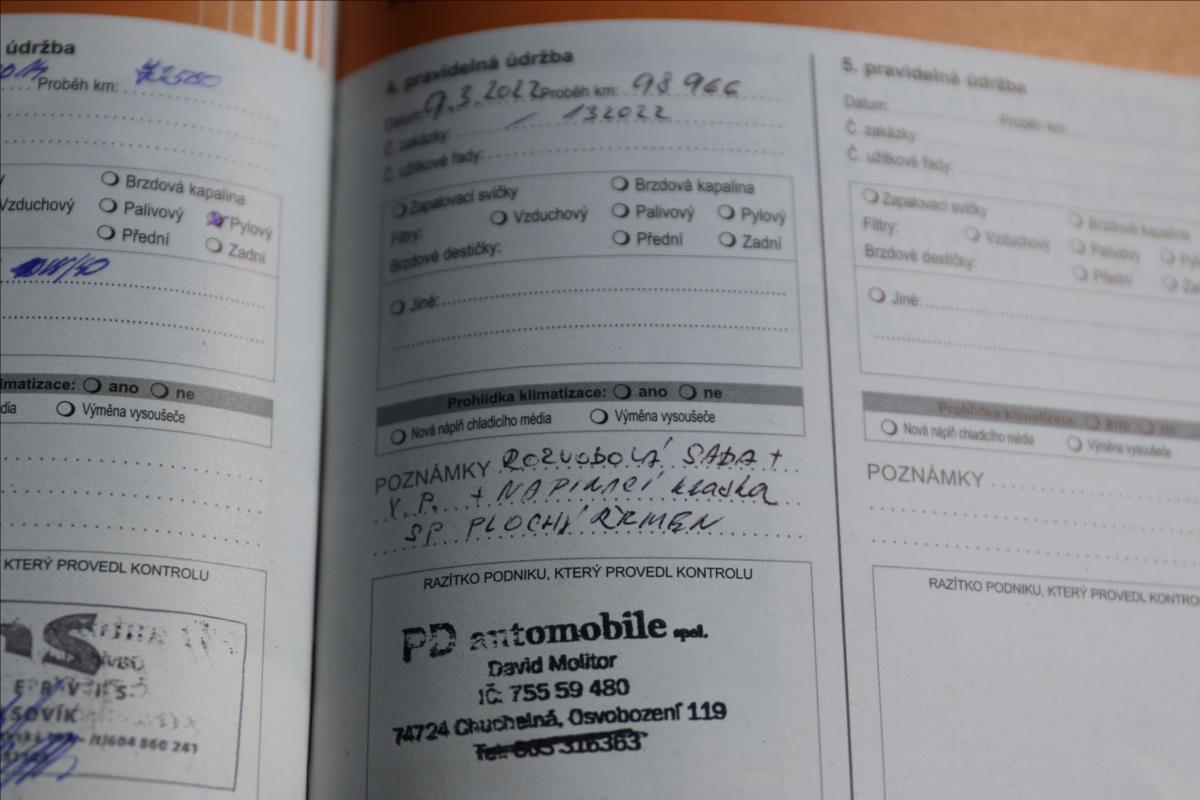 údržba
Proběh km:
Brzdová kapalina
Vzduchový Palivový Pylový
Přední Zadní
ano ne
Výměna vysoušeče
KTERÝ PROVEDL KONTROLU
4. pravidelná údržba
Datum: 9.3.2022 Proběh km: 98 966
Č. zakázky: / 132022
Č. užitkové řady:
Zapalovací svíčky Brzdová kapalina
Filtry: Vzduchový Palivový Pylový
Brzdové destičky: Přední Zadní
Jiné:
Prohlídka klimatizace: ano ne
Nová náplň chladicího média Výměna vysoušeče
POZNÁMKY ROZVODOVÁ SADA +
V.P. + NAPINACÍ kladka
SP. PLOCHÝ ŘEMEN
RAZÍTKO PODNIKU, KTERÝ PROVEDL KONTROLU
PD automobile spol.
David Molitor
IČ: 755 59 480
74724 Chuchelná, Osvobození 119
Tel.
5. pravidelná údržba
Datum: Proběh km:
Č. zakázky:
Č. užitkové řady:
Zapalovací svíčky Brzdová kapalina
Filtry: Vzduchový Palivový
Brzdové destičky: Přední
Jiné:
Prohlídka klimatizace: ano ne
Nová náplň chladicího média Výměna vysoušeče
POZNÁMKY
RAZÍTKO PODNIKU, KTERÝ PROVEDL